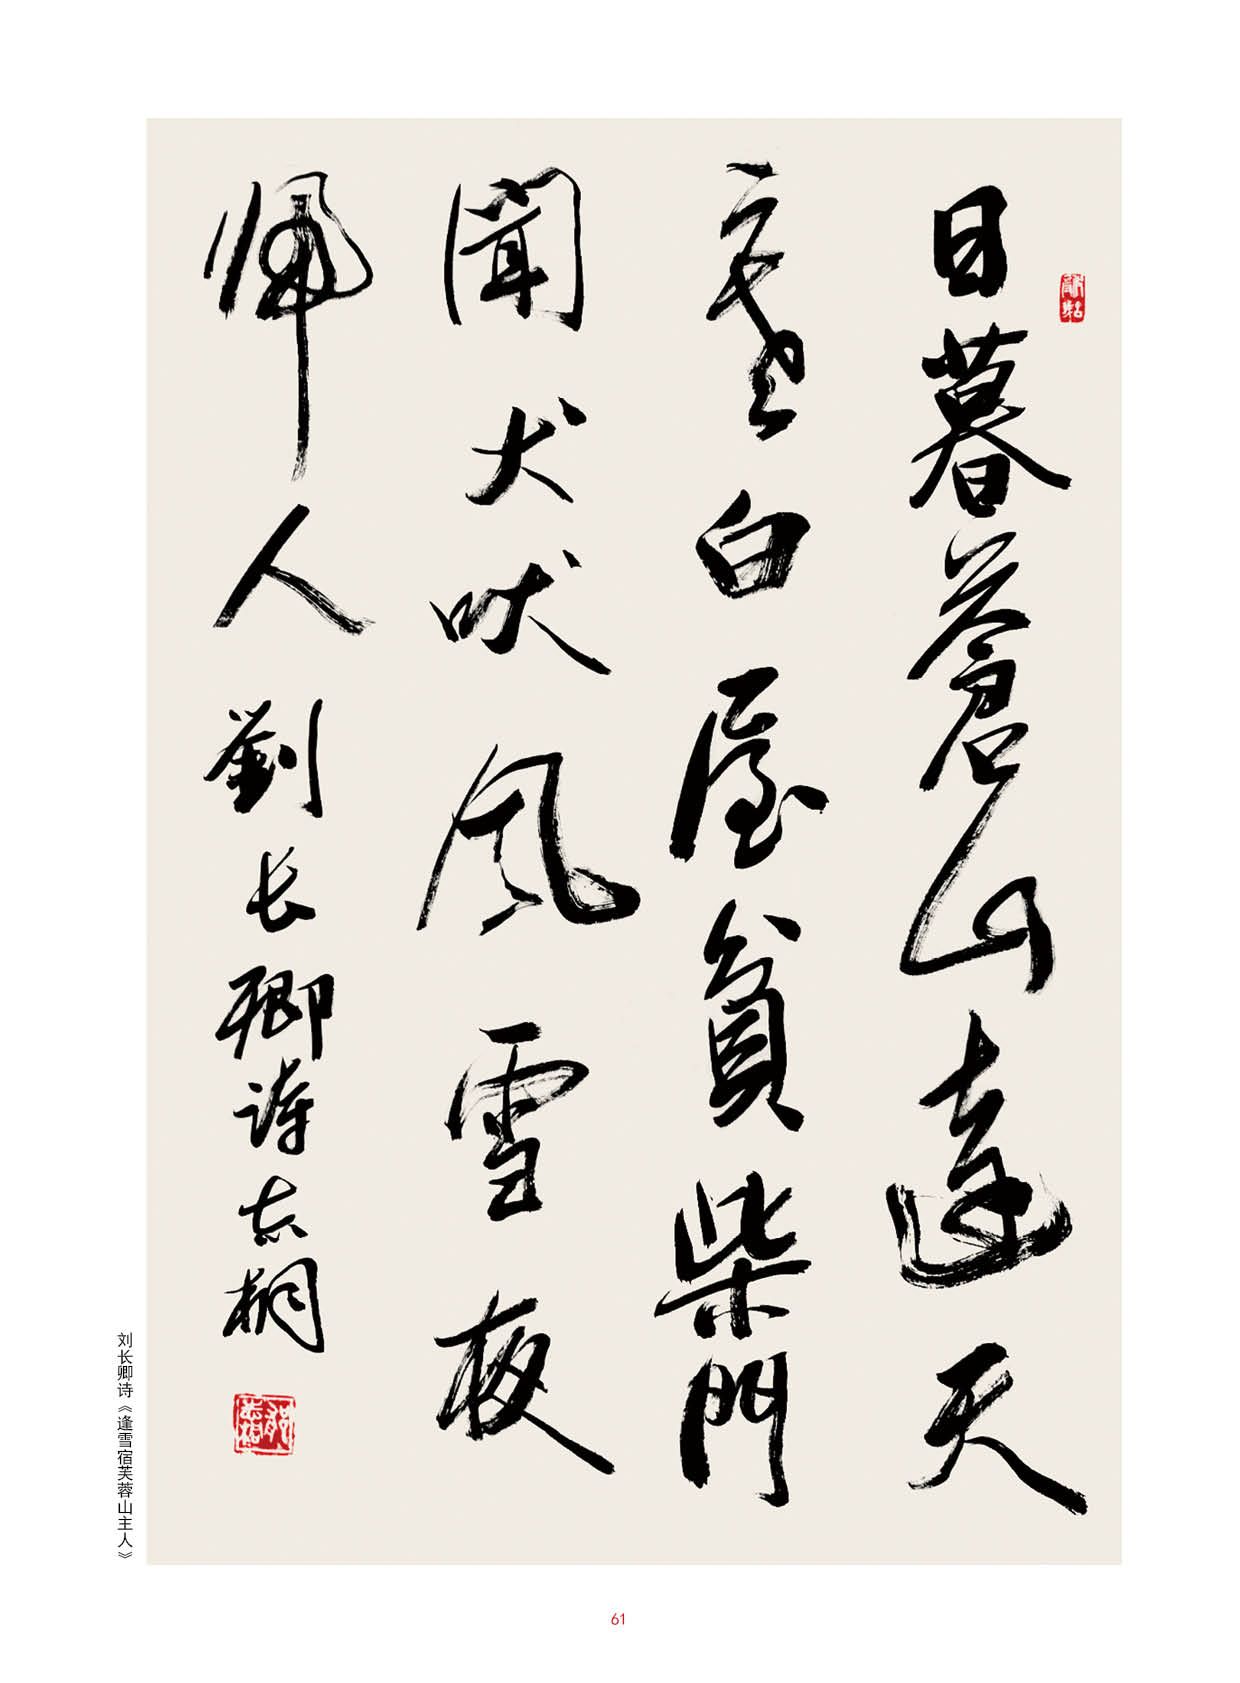 日暮蒼山遠天
寒白屋貧柴門
聞犬吠風雪夜
帰人劉长卿诗志桐
刘长卿诗《逢雪宿芙蓉山主人》
61